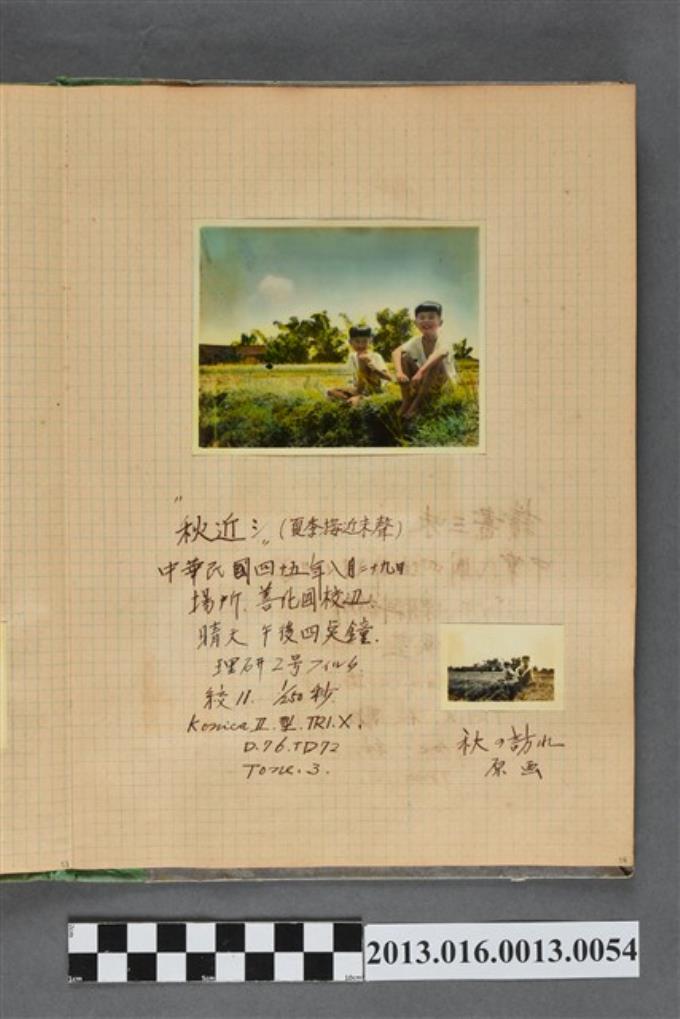 "秋近シ" (夏季接近末聲)
中華民國四十五年八月二十九日
場所. 善化國校辺.
晴天 午後四点鐘.
理研2号フィルタ
絞11. 1/250秒.
Konica II.型.TRI.X.
D.76.TD72
Tone.3.
秋の訪れ
原画
53
1cm
5cm
10cm
2013.016.0013.0054